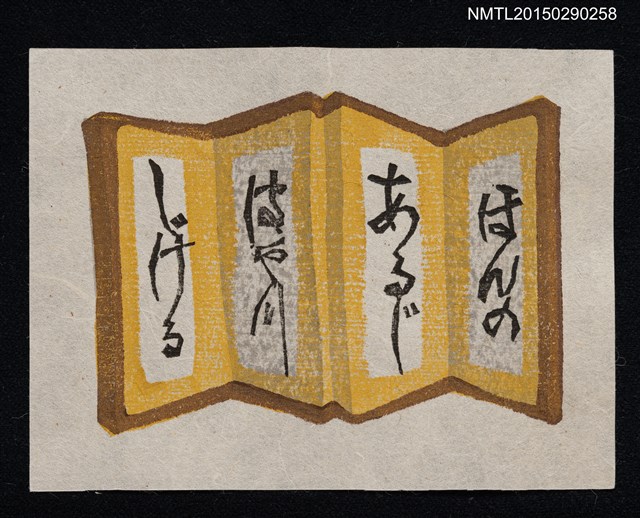 NMTL20150290258
ほんの
あるじ
はや川
しげる